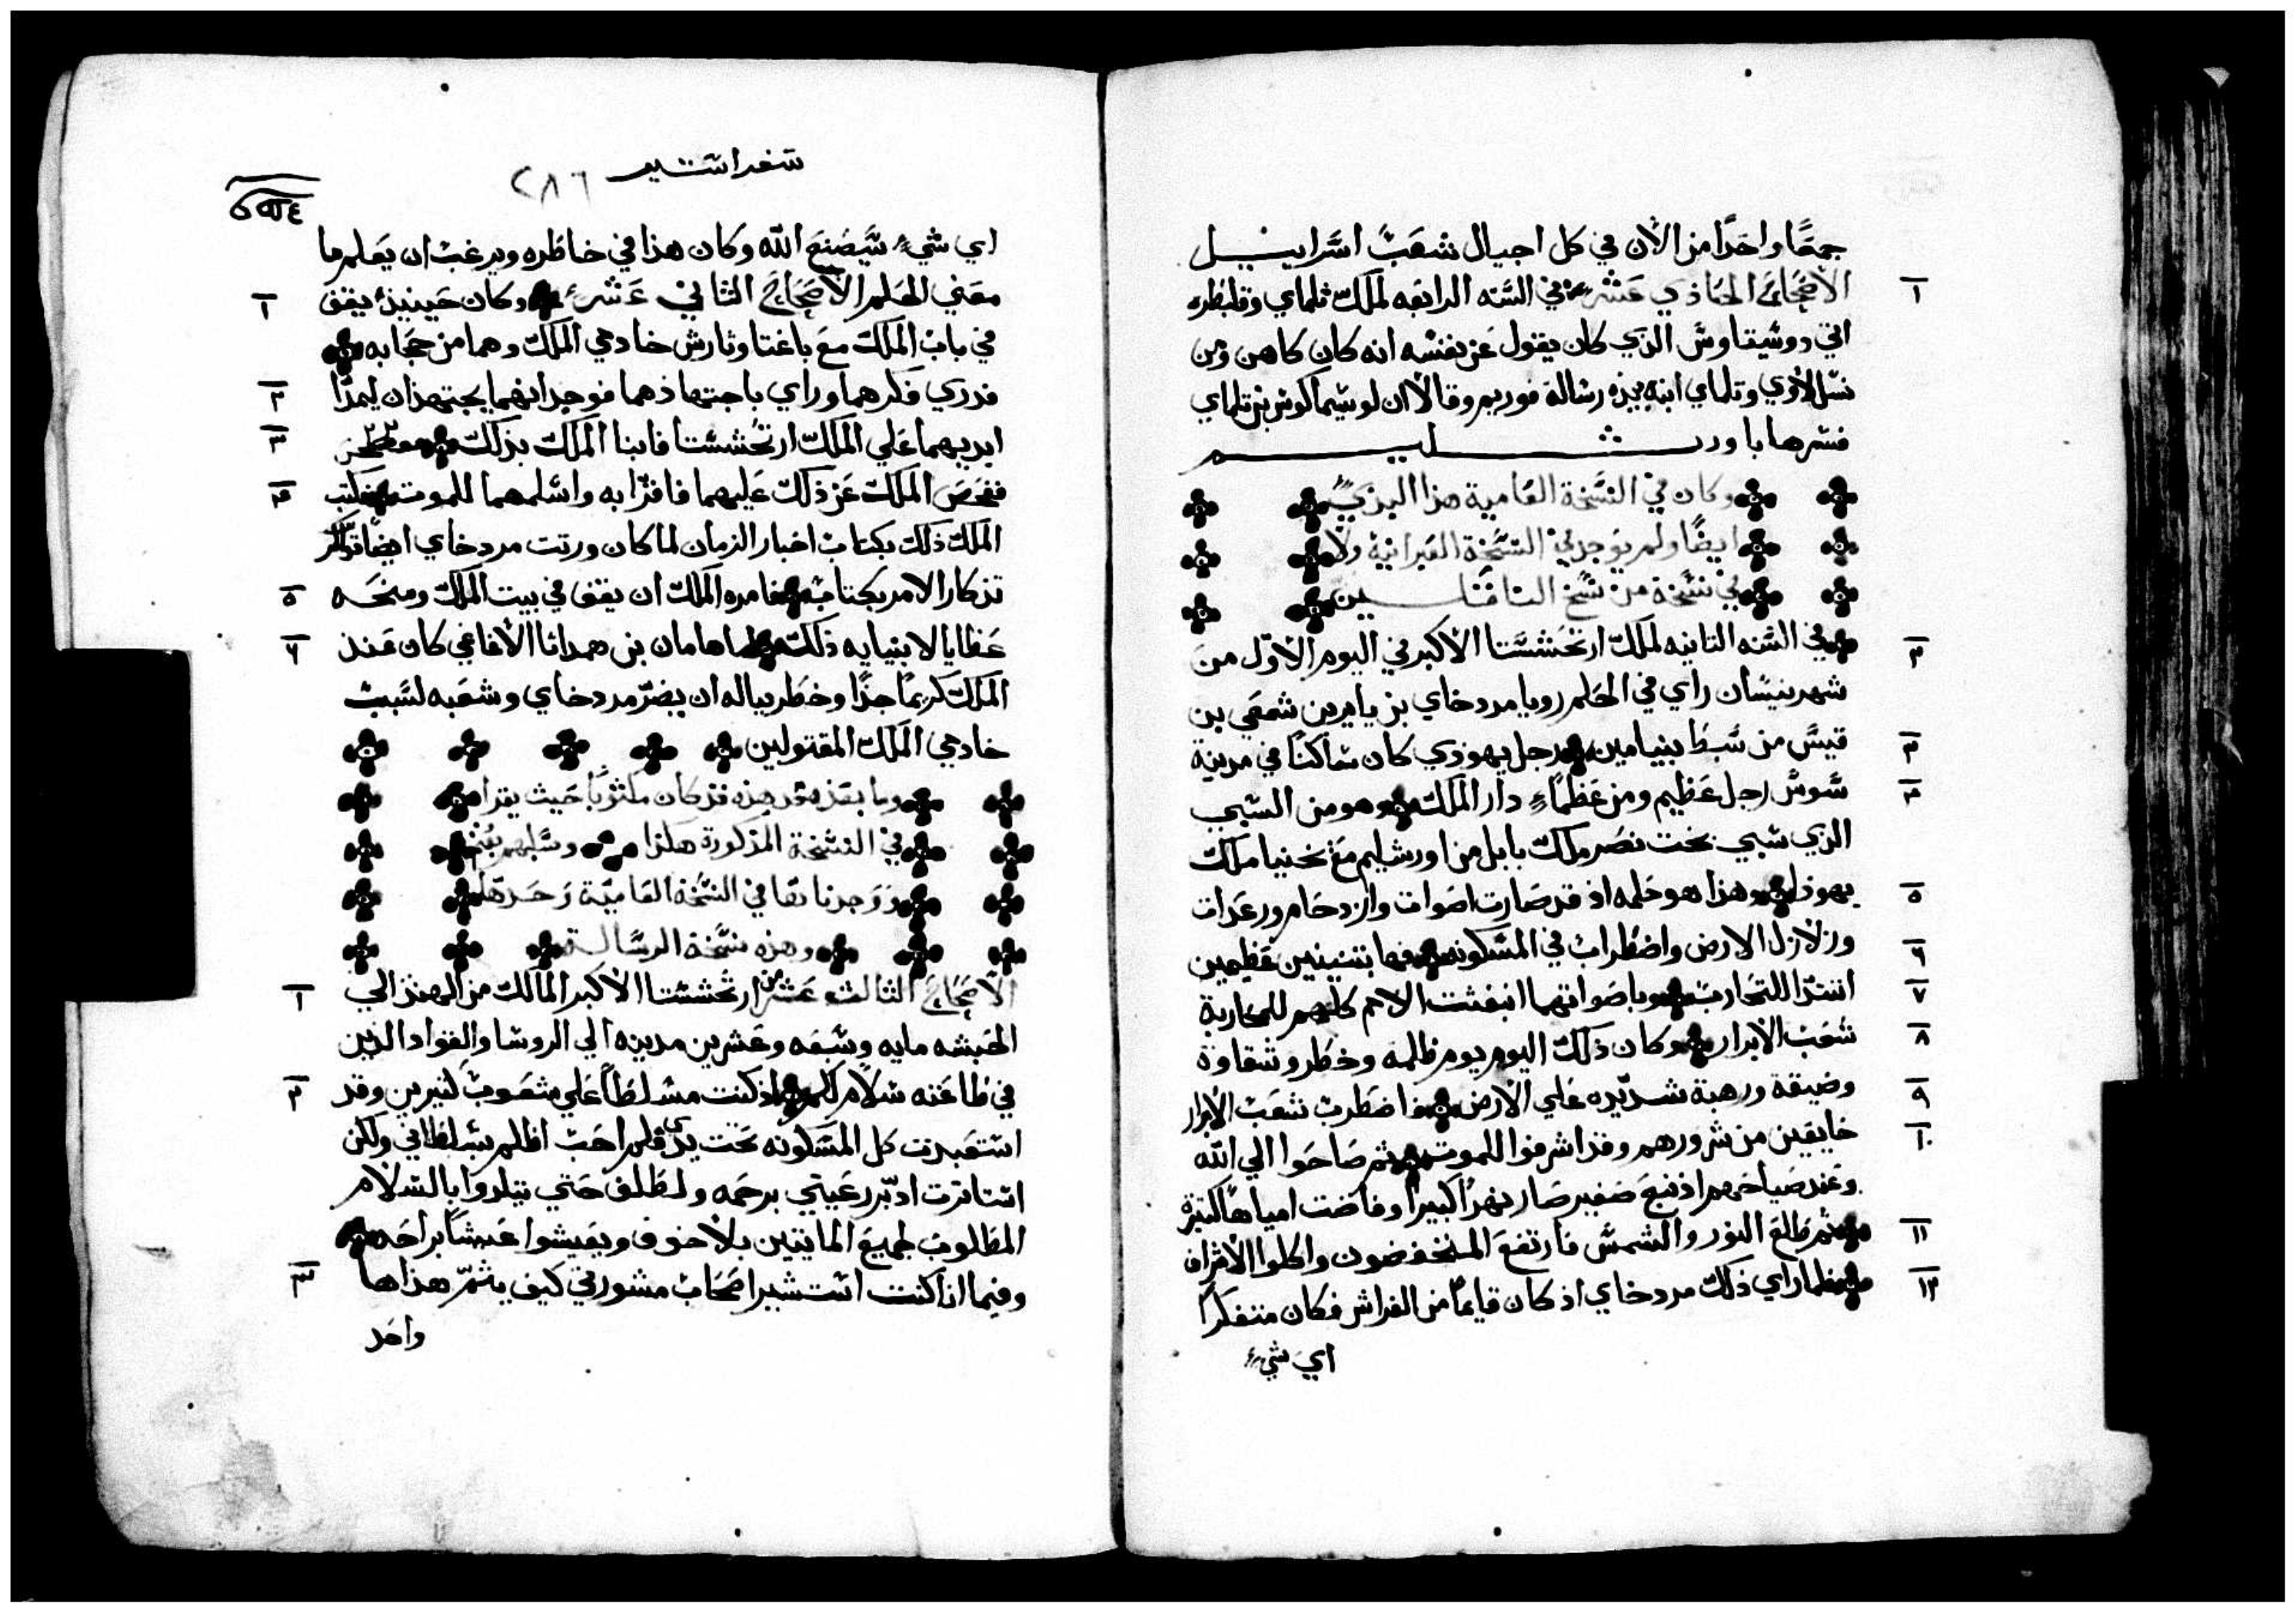 جمعًا واحدًا من الآن في كل اجيال شعب اسراييل
١ الاصحاح الحادي عشر في السنه الرابعه لملك تلماي وقلبطره
اتي دوسيتاوس الذي كان يقول عن نفسه انه كان كاهن ومن
نسل لاوي وتلماي ابنه بهذه رسالة فوريم وقالا ان لوسيماكوس بن تلماي
فسرها باورشليم
وكان في النسخة العامية هذا البدي
ايضًا ولم يوجد في النسخة العبرانية ولا
في نسخة من نسخ الناقلين
٢ في السنه الثانيه لملك ارتحشستا الاكبر في اليوم الاول من
شهر نيسان راي في الحلم رويا مردخاي بن يايرين شمعي بن
٣ قيس من سبط بنيامين رجل يهودي كان ساكنًا في مدينة
٤ سوس رجل عظيم ومن عظماء دار الملك وهو من السبي
الذي سبي بخت نصر ملك بابل من اورشليم مع يخنيا ملك
٥ يهوذا وهذا هو حلمه اذ قد صارت اصوات وازدحام ورعدات
٦ وزلازل الارض واضطراب في المسكونه فها بتنينين عظيمين
٧ استدا للتحارب وباصواتهما انبعثت الامم كلهم للمحاربة
٨ شعب الابرار وكان ذلك اليوم يوم ظلمه وخطر وشقاوة
٩ وضيقة ورهبة شديده علي الارض فاضطرب شعب الابرار
١٠ خايفين من شرورهم وقد اشرفوا للموت ثم صاحوا الي الله
وعند صياحهم اذ نبع صغير صار نهرًا كبيرًا وفاضت امياهًا كثيرة
١١ ثم طلع النور والشمس فارتفع المنخفضون واكلوا الاشراف
١٢ فلما راي ذلك مردخاي اذ كان قايمًا من الفراش فكان متفكرًا
اي شيء
سفر استير ٢٨٦
اي شيء سيصنع الله وكان هذا في خاطره ويرغب ان يعلم ما
١ معني الحلم الاصحاح الثاني عشر وكان حينيذٍ يقف
في باب الملك مع باغتا وثارش خادمي الملك وهما من حجابه
٢ فدري فكرهما وراي باجتهادهما فوجد انهما يجتهدان ليمدا
٣ ايديهما علي الملك ارتحشستا فانبا الملك بذلك
٤ ففحص الملك عن ذلك عليهما فاقرا به واسلمهما للموت فكتب
الملك ذلك بكتاب اخبار الزمان لما كان ورتت مردخاي ايضًا
٥ تذكار الامر بكتابه فامره الملك ان يقف في بيت الملك ومنحه
٦ عطايا لانبيايه ذلك واما هامان بن همداثا الاغاغي كان عند
الملك كريمًا جدًا وخطر بباله ان يضر مردخاي وشعبه لسبب
خادمي الملك المقتولين
وما بعد هذه قد كان مكتوبًا حيث يقرا
في النسخة المذكورة هكذا وسلبهم
ووجدناها في النسخة العامية وحدها
وهذه نسخة الرسالة
١ الاصحاح الثالث عشر من ارتحشستا الاكبر المالك من الهند الي
الحبشه مايه وسبعه وعشرين مدينه الي الروسا والقواد الذين
٢ في طاعته سلام لكم اذ كنت مسلطًا علي شعوب كثيرين وقد
استعبدت كل المسكونه تحت يدي فلم احب اظلم بسلطاني ولكن
استاثرت ادبر رعيتي برحمه ولطلف حتي يتلدوا بالسلام
المطلوب لجميع المايتين بلا خوف ويعيشوا عيشًا براحه
٣ وفيما انا كنت استشير اصحاب مشورتي كيف يتم هذا ها
واحد